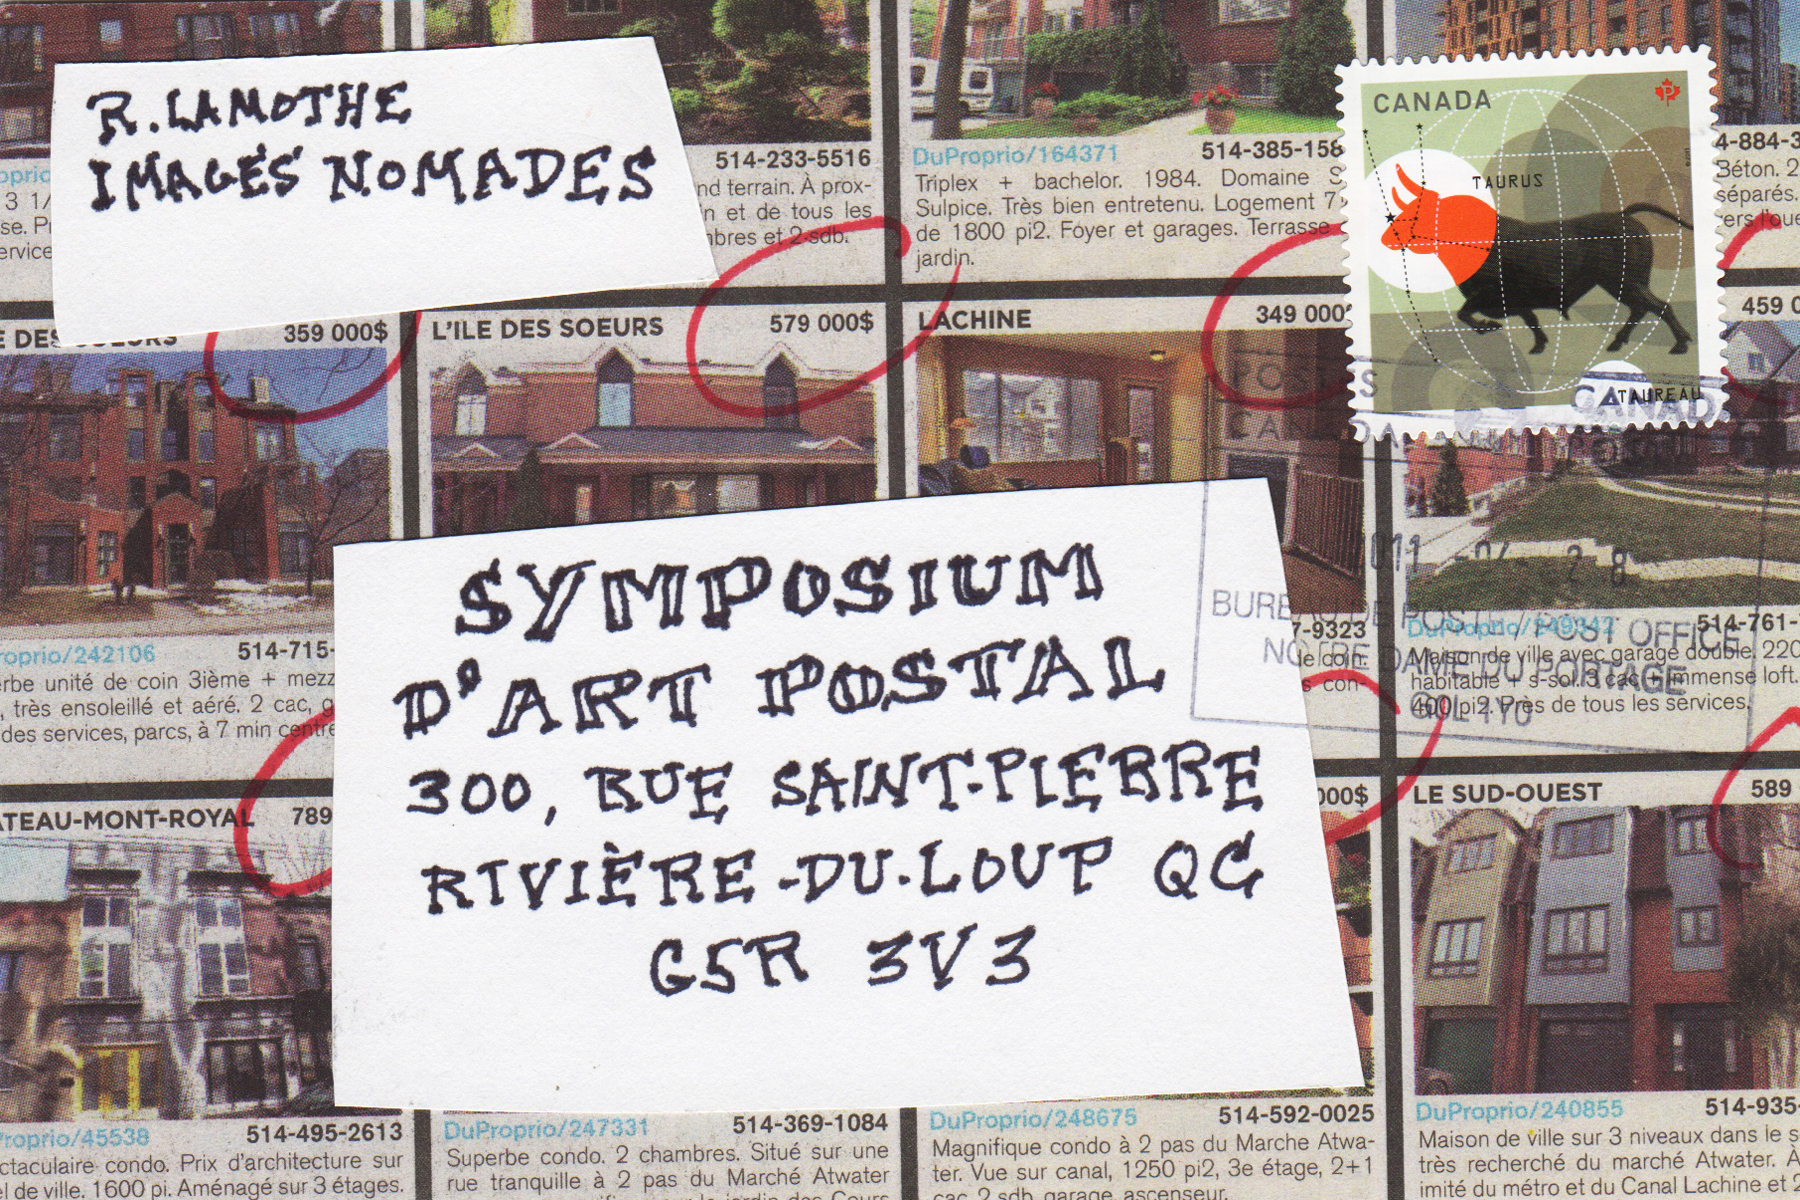 R. LAMOTHE
IMAGES NOMADES
CANADA
P
TAURUS
TAUREAU
514-233-5516
nd terrain. À prox-
n et de tous les
bres et 2 sdb.
DuProprio/164371
514-385-158
Triplex + bachelor. 1984. Domaine S
Sulpice. Très bien entretenu. Logement 7
de 1800 pi2. Foyer et garages. Terrasse
jardin.
4-884-3
Béton. 2
séparés.
ers l'oue
3 1/
se. P
ervice
359 000$
L'ILE DES SOEURS
579 000$
LACHINE
349 000$
459 0
POSTES
CANADA
CANADA
011 -04- 28
BUREAU DE POSTE / POST OFFICE
NOTRE DAME DU PORTAGE
G0L 1Y0
SYMPOSIUM
D'ART POSTAL
300, RUE SAINT-PIERRE
RIVIÈRE-DU-LOUP QC
G5R 3V3
roprio/242106
514-715-
erbe unité de coin 3ième + mezz
, très ensoleillé et aéré. 2 cac, g
des services, parcs, à 7 min centre
7-9323
le coin.
s con-
DuProprio/249347
514-761-
Maison de ville avec garage double. 220
habitable + s-sol. 3 cac + immense loft.
400 pi2. Près de tous les services.
ATEAU-MONT-ROYAL
789
000$
LE SUD-OUEST
589
roprio/45538
514-495-2613
ctaculaire condo. Prix d'architecture sur
el de ville. 1600 pi. Aménagé sur 3 étages.
DuProprio/247331
514-369-1084
Superbe condo. 2 chambres. Situé sur une
rue tranquille à 2 pas du Marché Atwater
DuProprio/248675
514-592-0025
Magnifique condo à 2 pas du Marche Atwa-
ter. Vue sur canal, 1250 pi2, 3e étage, 2+1
cac, 2 sdb, garage, ascenseur.
DuProprio/240855
514-935-
Maison de ville sur 3 niveaux dans le s
très recherché du marché Atwater. A
imité du métro et du Canal Lachine et 2